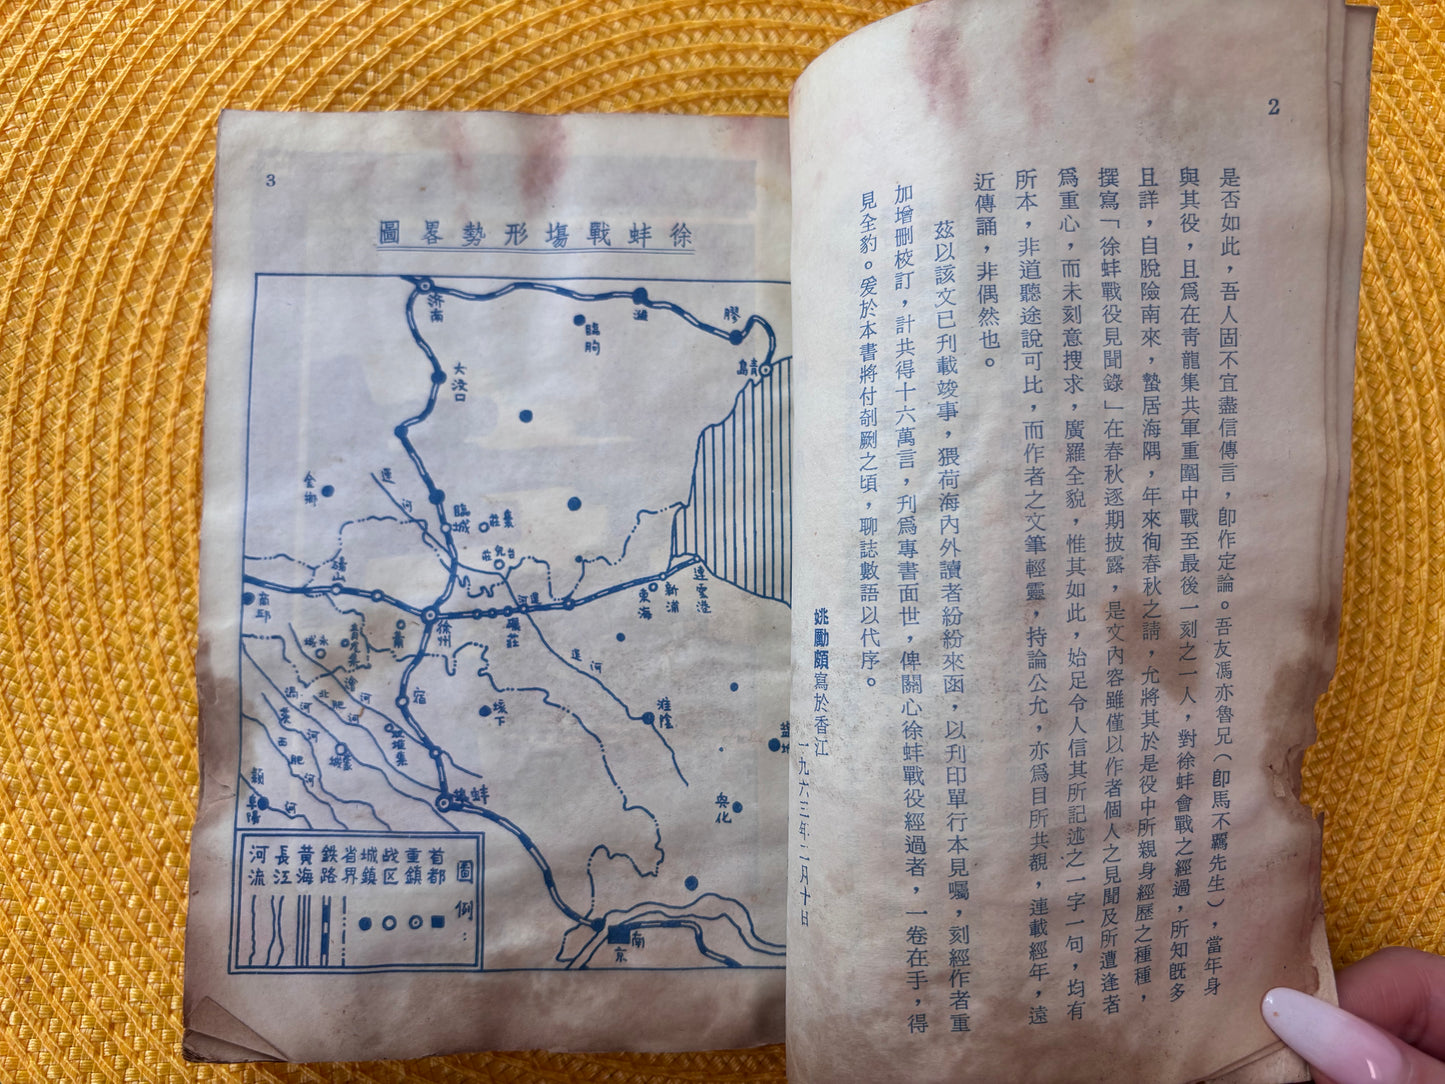 2
是否如此，吾人固不宜盡信傳言，卽作定論。吾友馮亦魯兄（卽馬不羈先生），當年身
與其役，且爲在靑龍集共軍重圍中戰至最後一刻之一人，對徐蚌會戰之經過，所知旣多
且詳，自脫險南來，蟄居海隅，年來徇春秋之請，允將其於是役中所親身經歷之種種，
撰寫「徐蚌戰役見聞錄」在春秋逐期披露，是文內容雖僅以作者個人之見聞及所遭逢者
爲重心，而未刻意搜求，廣羅全貌，惟其如此，始足令人信其所記述之一字一句，均有
所本，非道聽途說可比，而作者之文筆輕靈，持論公允，亦爲目所共覩，連載經年，遠
近傳誦，非偶然也。
茲以該文已刊載竣事，猥荷海內外讀者紛紛來函，以刊印單行本見囑，刻經作者重
加增删校訂，計共得十六萬言，刊爲專書面世，俾關心徐蚌戰役經過者，一卷在手，得
見全豹。爰於本書將付剞劂之頃，聊誌數語以代序。
姚勵頗寫於香江
一九六三年二月十日
3
徐蚌戰塲形勢畧圖
济南
濰
膠
青島
臨朐
大汶口
金鄉
運河
臨城
棗莊
台兒莊
碭山
商邱
徐州
運河
碾莊
東海
新浦
連雲港
蕭
永城
青龍集
澮河
北肥河
渦河
蒙城
西肥河
宿
双堆集
垓下
運河
淮陰
鹽城
興化
潁河
阜陽
蚌埠
南京
圖例：
首都
重鎮
战区
城鎮
省界
鉄路
黄海
長江
河流